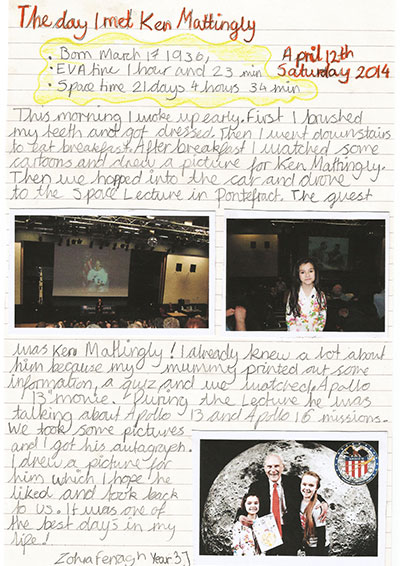 The day I met Ken Mattingly
April 12th
Saturday 2014
• Born March 17 1936,
• EVA time 1 hour and 23 min
• Space time 21 days 4 hours 34 min
This morning I woke up early. First I brushed
my teeth and got dressed. Then I went downstairs
to eat breakfast. After breakfast I watched some
cartoons and drew a picture for Ken Mattingly.
Then we hopped into the car and drove
to the Space Lecture in Pontefract. The guest
was Ken Mattingly! I already knew a lot about
him because my mummy printed out some
information, a quiz and we watched Apollo
"13" movie. During the Lecture he was
talking about Apollo 13 and Apollo 16 missions.
We took some pictures
and I got his autograph.
I drew a picture for
him which I hope he
liked and took back
to US. It was one of
the best days in my
life!
Zohra Fenagh Year 3J